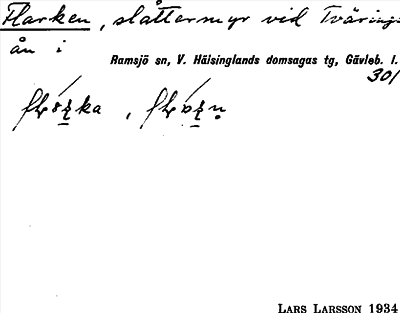 Flarken, slåttermyr vid Tvärings-
ån i
Ramsjö sn, V. Hälsinglands domsagas tg, Gävleb. l.
301
LARS LARSSON 1934